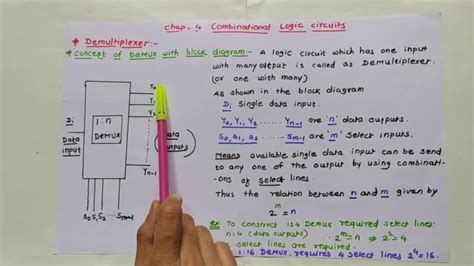 Chap-4 Combinational Logic circuits
* Demultiplexer:-
* Concept of DEMUX with block diagram:- A logic circuit which has one input
with many output is called as Demultiplexer.
(or one with many)
As shown in the block diagram
Di Single data input.
Y0, Y1, Y2 ...... Yn-1 are 'n' data outputs.
S0, S1, S2 ... Sm-1 are 'm' Select inputs.
Means available single data input can be send
to any one of the output by using combinati-
ons of select lines.
Thus the relation between n and m given by
2^m = n
Ex: To construct 1:4 Demux required select lines:
n=4 (data outputs) ∴ 2^m = n ⇒ 2^2 = 4
select lines are required.
1:16 DEMUX, requires 4 select lines 2^4=16.
Di
Data
input
1:n
DEMUX
Y0
Y1
Y2
Yn-1
(Data
outputs)
S0 S1 S2 ... Sm-1